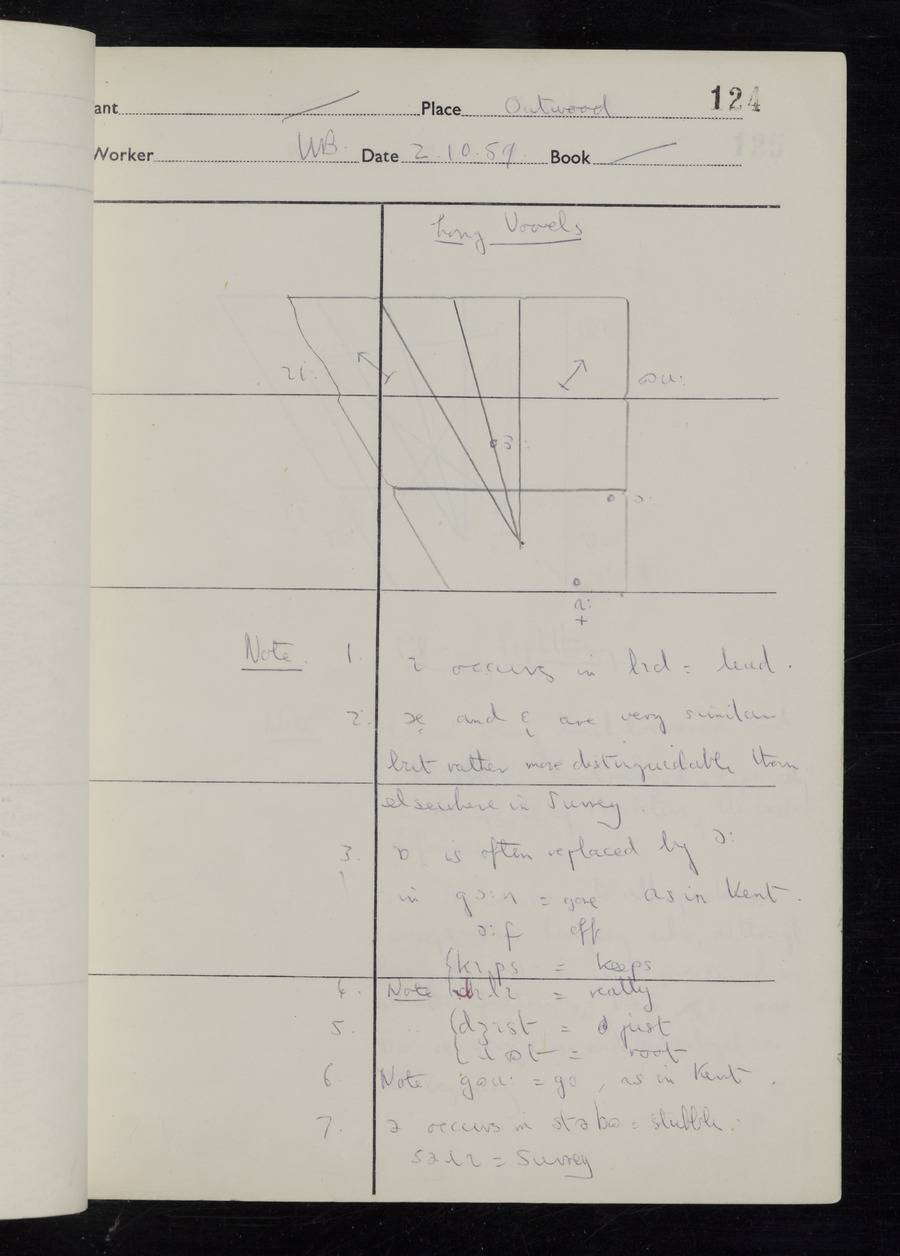 ant Place Outwood 124
Worker WB. Date 2.10.59. Book
Long Vowels
ɪi: ωu:
ɜ:
ɔ:
ɑ:
+
Note. 1. ɪ occurs in lɪd = lead.
2. æ and ɛ are very similar
but rather more distinguishable than
elsewhere in Surrey
3. ɒ is often replaced by ɔ:
in gɔ:n = gone as in Kent.
ɔ:f off
{kɪps = keeps
4. Note ɹɪlɪ = really
5. {dʒɪst = just
{ɹωt = root
6. Note gωu: = go, as in Kent.
7. ə occurs in stəbω = stubble.
səɹɪ = Surrey